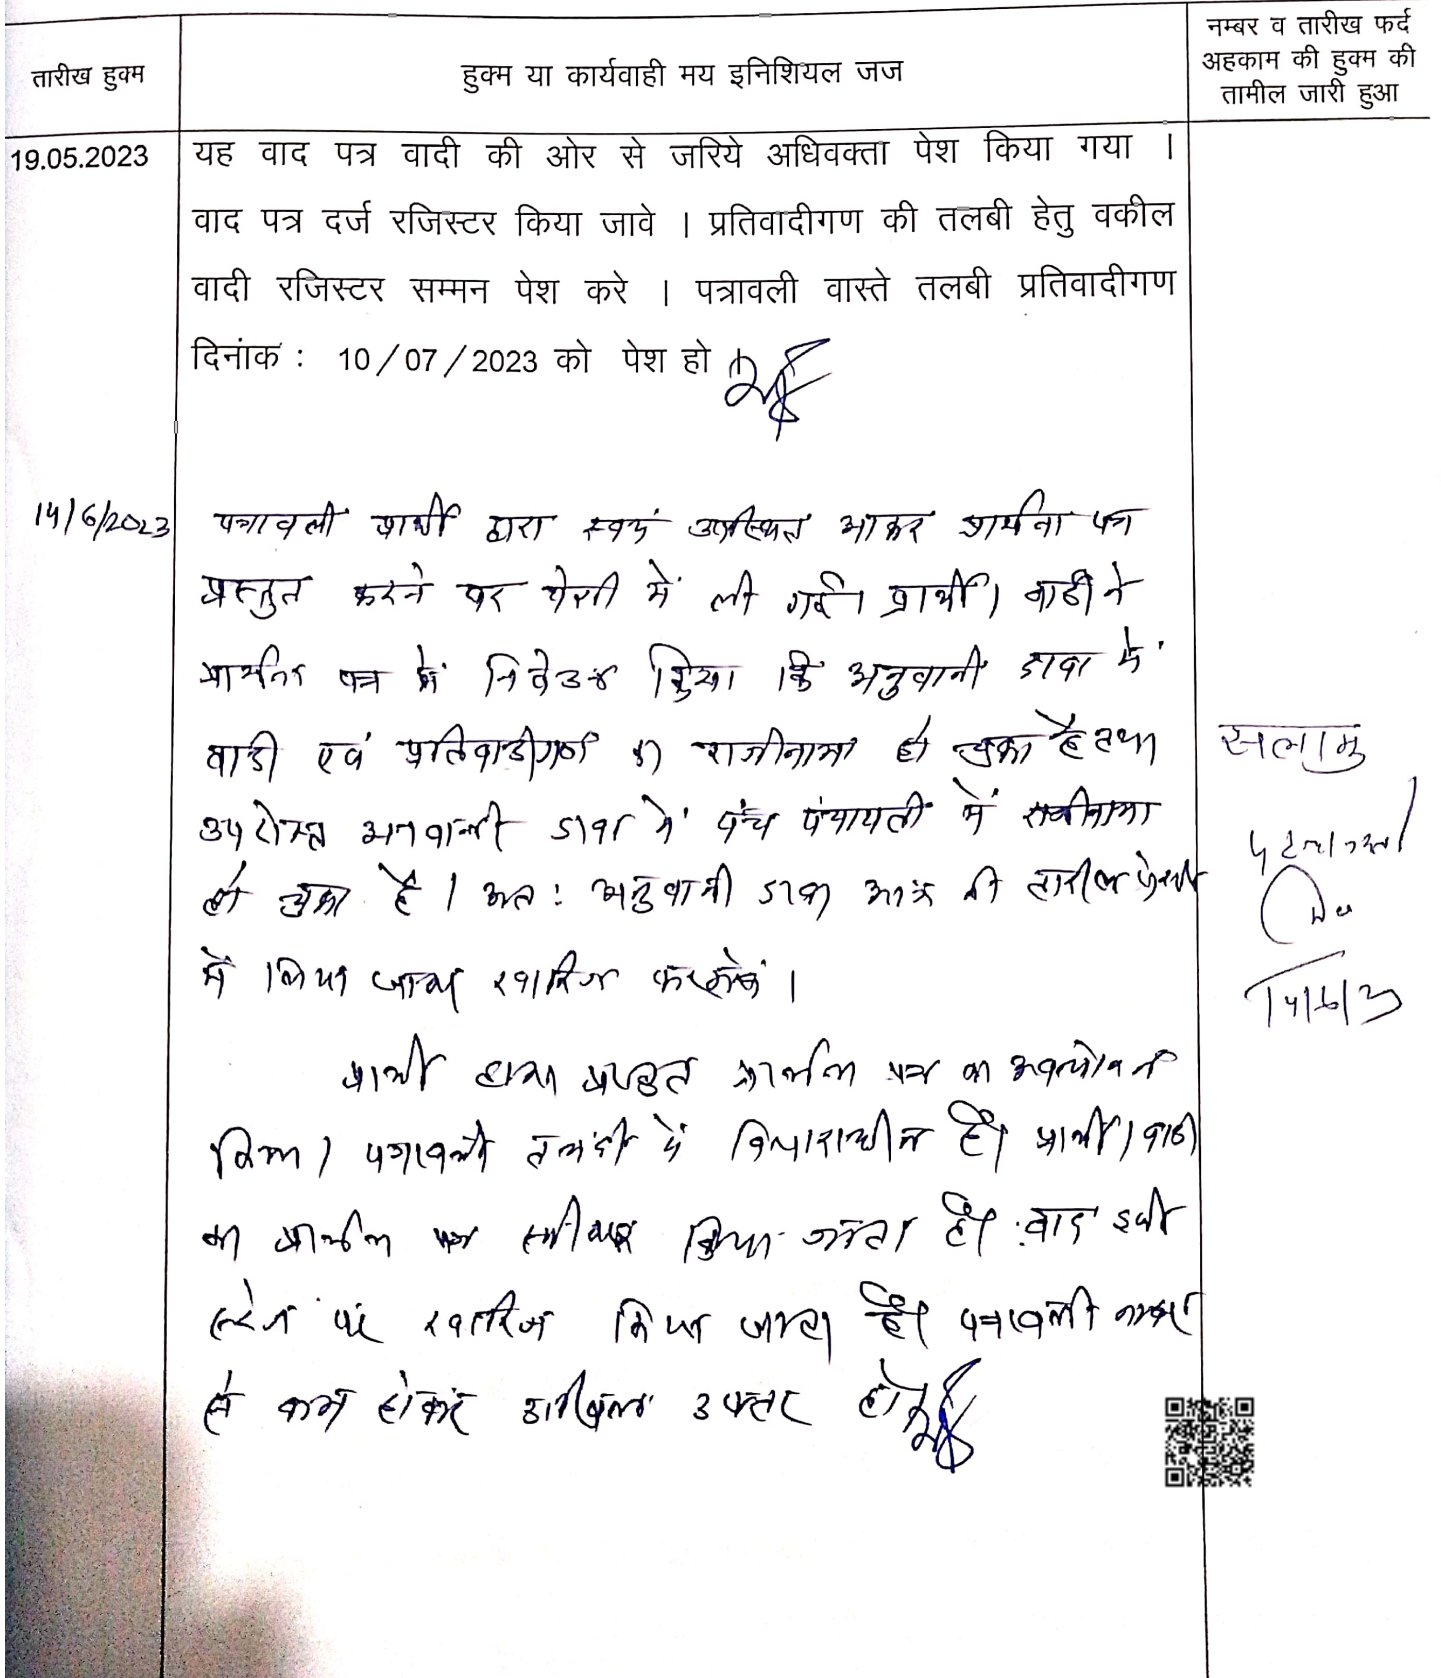 तारीख हुक्म
हुक्म या कार्यवाही मय इनिशियल जज
नम्बर व तारीख फर्द
अहकाम की हुक्म की
तामील जारी हुआ
19.05.2023
यह वाद पत्र वादी की ओर से जरिये अधिवक्ता पेश किया गया ।
वाद पत्र दर्ज रजिस्टर किया जावे । प्रतिवादीगण की तलबी हेतु वकील
वादी रजिस्टर सम्मन पेश करे । पत्रावली वास्ते तलबी प्रतिवादीगण
दिनांक : 10/07/2023 को पेश हो
14/6/2023
पत्रावली प्रार्थी द्वारा स्वयं उपस्थित आकर प्रार्थना पत्र
प्रस्तुत करने पर पेशी में ली गई। प्रार्थी/वादी ने
प्रार्थना पत्र में निवेदन किया कि अनुवानी दावा में
वादी एवं प्रतिवादीगण का राजीनामा हो चुका है तथा
उपरोक्त अनवानी दावा में पंच पंचायती में राजीनामा
हो चुका है। अतः अनुवानी दावा आज की तारीख पेशी
में लिया जाकर खारिज
प्रार्थी द्वारा प्रस्तुत प्रार्थना पत्र का अवलोकन
किया। पत्रावली तलबी में विचाराधीन है। प्रार्थी/वादी
का प्रार्थना पत्र स्वीकार किया जाता है। वाद इसी
स्टेज पर खारिज किया जाता है। पत्रावली नम्बर
से कम होकर दाखिल दफ्तर हो
सलामु
14/6/23